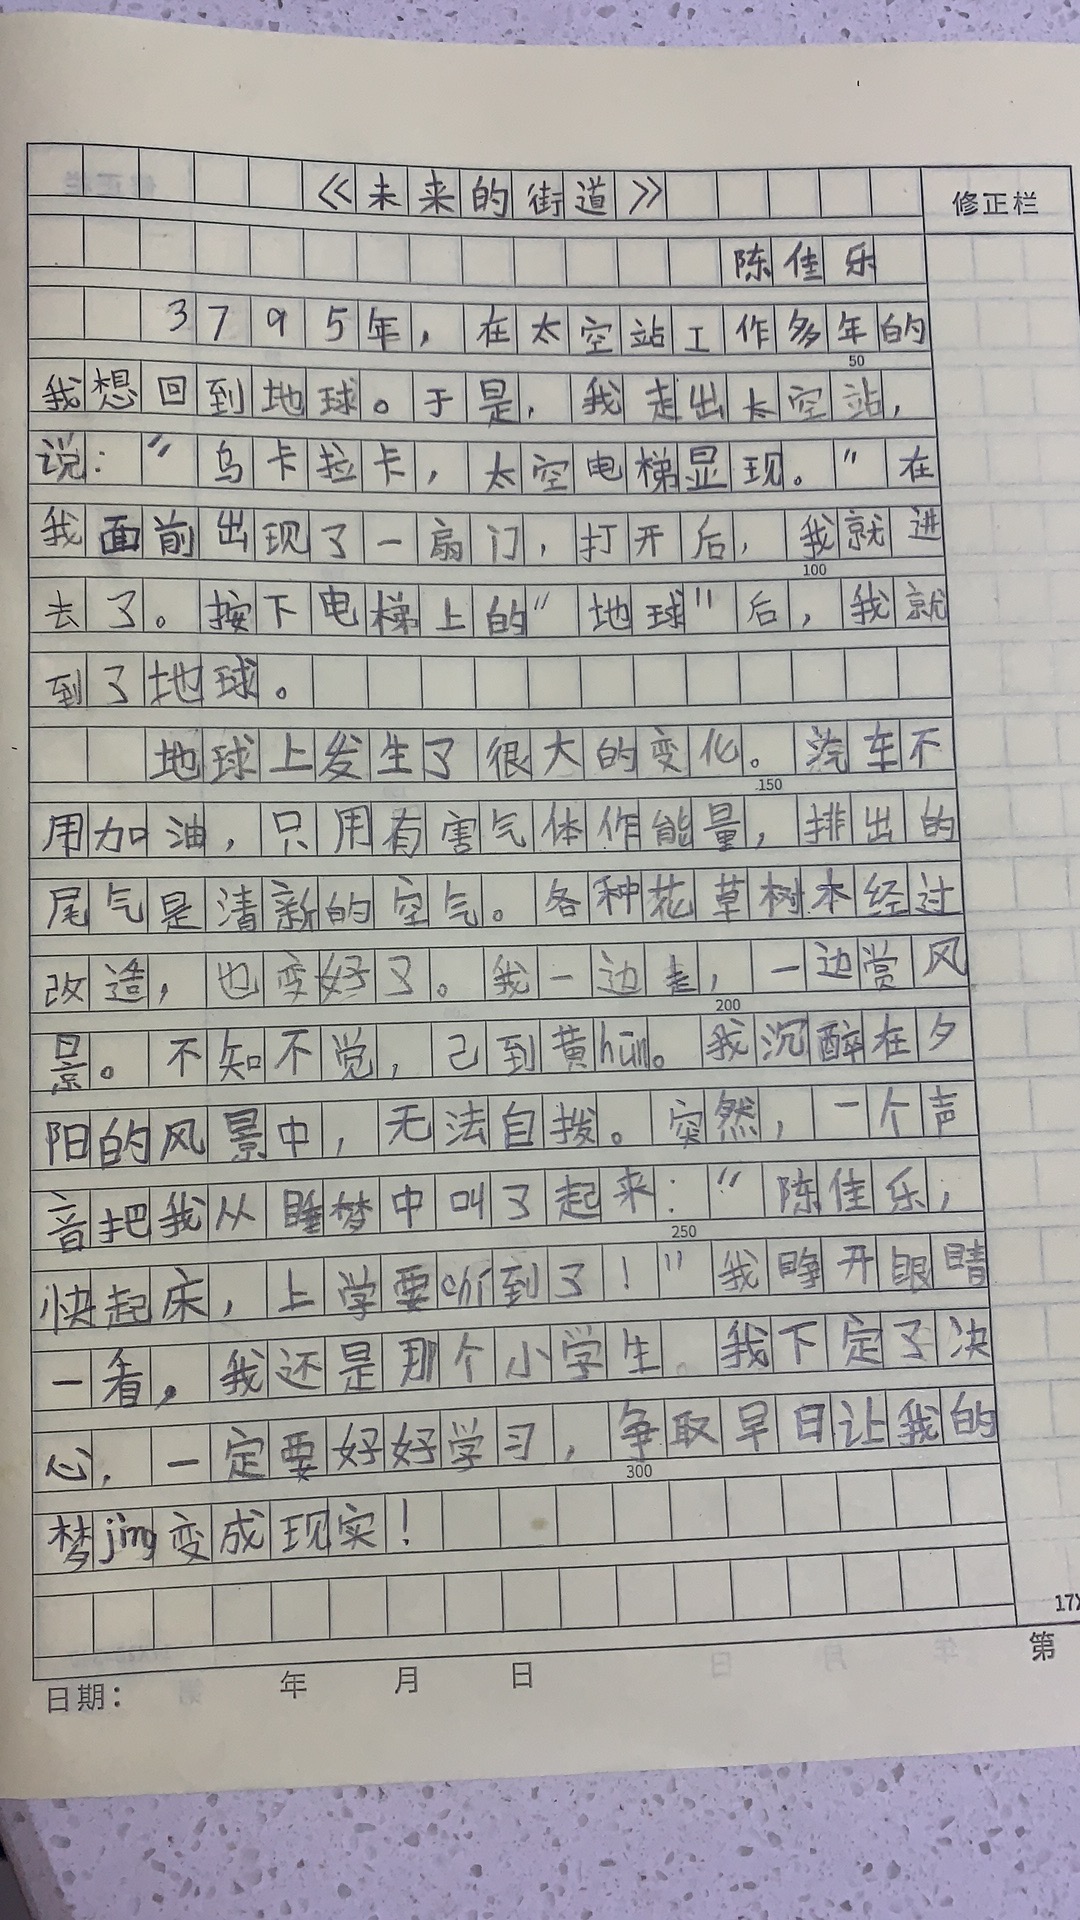 《未来的街道》
修正栏
陈佳乐
3795年，在太空站工作多年的
50
我想回到地球。于是，我走出太空站，
说：“乌卡拉卡，太空电梯显现。”在
我面前出现了一扇门，打开后，我就进
100
去了。按下电梯上的“地球”后，我就
到了地球。
地球上发生了很大的变化。汽车不
150
用加油，只用有害气体作能量，排出的
尾气是清新的空气。各种花草树本经过
改造，也变好了。我一边走，一边赏风
200
景。不知不觉，己到黄hūn。我沉醉在夕
阳的风景中，无法自拨。突然，一个声
音把我从睡梦中叫了起来：“陈佳乐，
250
快起床，上学要到了！”我睁开眼睛
一看，我还是那个小学生。我下定了决
心，一定要好好学习，争取早日让我的
300
梦jìng变成现实！
17X
日期： 年 月 日
第